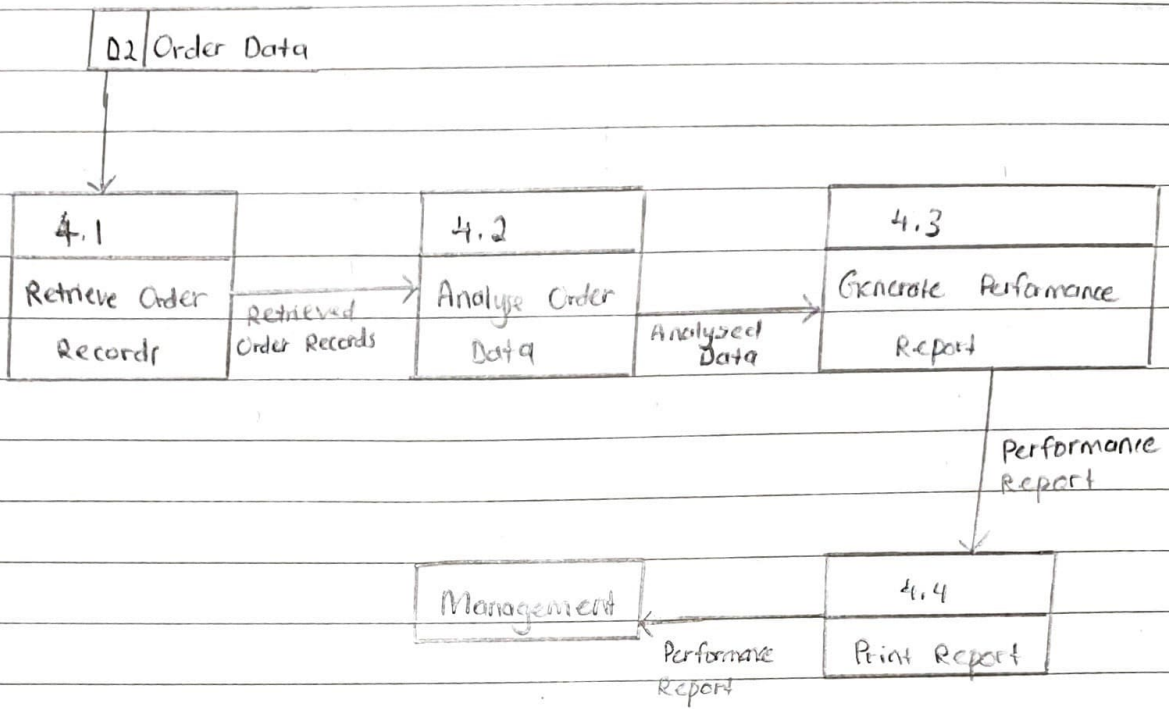 D2 Order Data
4.1
Retrieve Order
Records
Retrieved
Order Records
4.2
Analyse Order
Data
Analysed
Data
4.3
Generate Performance
Report
Performance
Report
4.4
Print Report
Performance
Report
Management